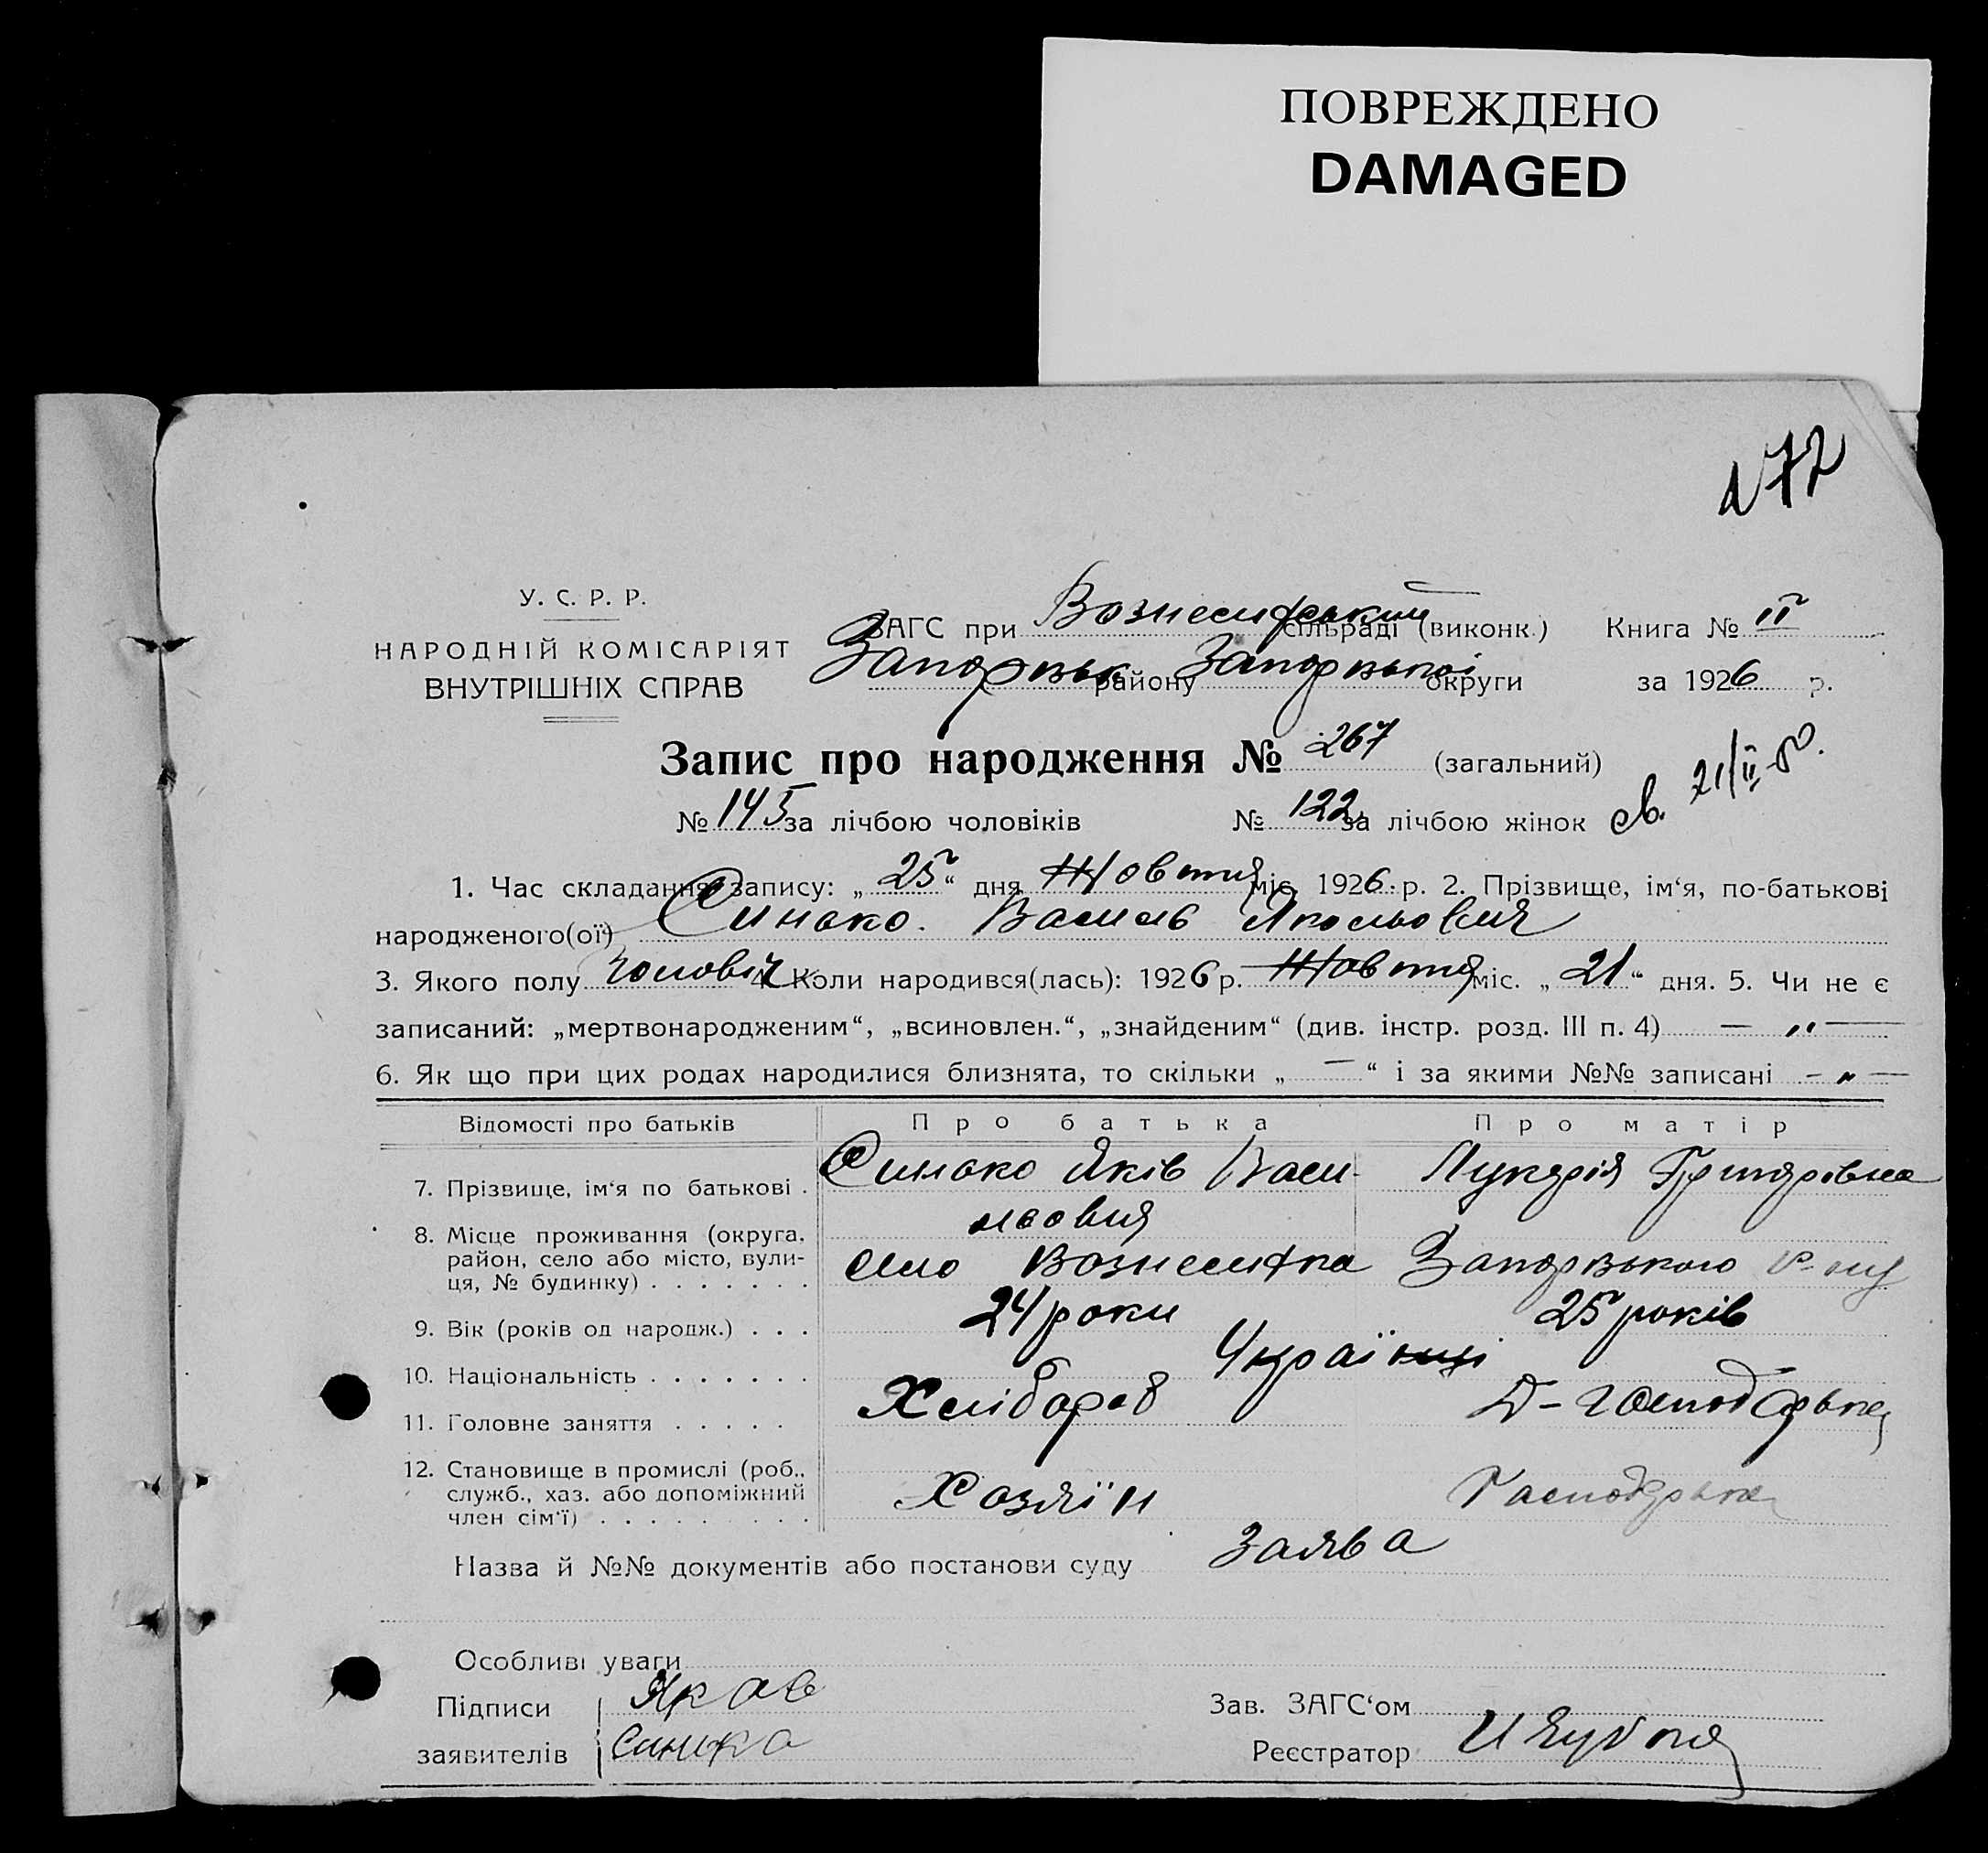 ПОВРЕЖДЕНО
DAMAGED
У. С. Р. Р.
НАРОДНІЙ КОМІСАРІЯТ
ВНУТРІШНІХ СПРАВ
ЗАГС при Вознесенський сільраді (виконк.) Книга № II
Запорізьк району Запорізької округи за 1926 р.
Запис про народження № 267 (загальний)
№ 145 за лічбою чоловіків № 122 за лічбою жінок
св. 21/II-50.
1. Час складання запису: „ 25 “ дня Жовтня міс. 1926 р. 2. Прізвище, ім‘я, по-батькові
народженого(ої) Синько. Василь Якольович
3. Якого полу чоловіч 4. Коли народився(лась): 1926 р. Жовтня міс. „ 21 “ дня. 5. Чи не є
записаний: „мертвонародженим“, „всиновлен.“, „знайденим“ (див. інстр. розд. III п. 4) — „ —
6. Як що при цих родах народилися близнята, то скільки „ — “ і за якими №№ записані - „ —
Відомості про батьків Про батька Про матір
7. Прізвище, ім‘я по батькові . Синько Яків Васи- Лукерія Григорівна
льович
8. Місце проживання (округа,
район, село або місто, вули-
ця, № будинку) . . . . . . . село Вознесенка Запорізького р-ну
9. Вік (років од народж.) . . . 24 роки 25 років
10. Національність . . . . . . . Українці
11. Головне заняття . . . . . Хлібороб Д-господарька
12. Становище в промислі (роб.,
служб., хаз. або допоміжний
член сім‘ї) . . . . . . . . . Хозяїн Господарька
Назва й №№ документів або постанови суду Заява
Особливі уваги
Підписи Яков
заявителів Синько
Зав. ЗАГС‘ом
Реєстратор